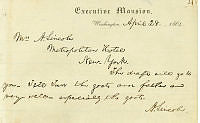 Executive Mansion,
Washington, April 28, 186
Mrs A. Lincoln
Metropolitan Hotel
New York.
The draft will go to
you. Tell Tad the goats and father are
very well especially the goats
A. Lincoln